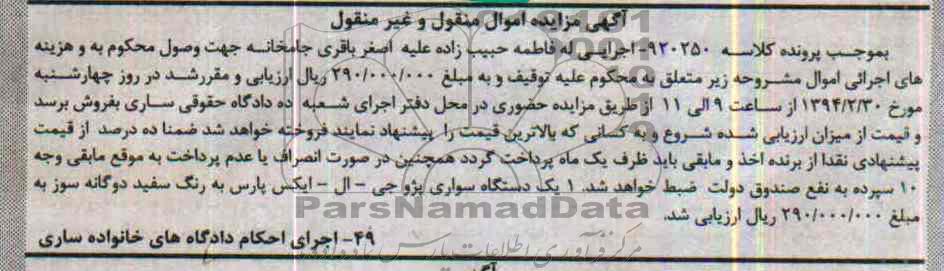 آگهی مزایده اموال منقول و غیر منقول
بموجب پرونده کلاسه ۹۲۰۲۵۰-اجرایی له فاطمه حبیب زاده علیه اصغر باقری جامخانه جهت وصول محکوم به و هزینه
های اجرائی اموال مشروحه زیر متعلق به محکوم علیه توقیف و به مبلغ ۲۹۰/۰۰۰/۰۰۰ ریال ارزیابی و مقررشد در روز چهارشنبه
مورخ ۱۳۹۴/۲/۳۰ از ساعت ۹ الی ۱۱ از طریق مزایده حضوری در محل دفتر اجرای شعبه ده دادگاه حقوقی ساری بفروش برسد
و قیمت از میزان ارزیابی شده شروع و به کسانی که بالاترین قیمت را پیشنهاد نمایند فروخته خواهد شد ضمنا ده درصد از قیمت
پیشنهادی نقدا از برنده اخذ و مابقی باید ظرف یک ماه پرداخت گردد همچنین در صورت انصراف یا عدم پرداخت به موقع مابقی وجه
۱۰ سپرده به نفع صندوق دولت ضبط خواهد شد. ۱ یک دستگاه سواری پژو جی - ال - ایکس پارس به رنگ سفید دوگانه سوز به
مبلغ ۲۹۰/۰۰۰/۰۰۰ ریال ارزیابی شد.
ParsNamadData
۴۹- اجرای احکام دادگاه های خانواده ساری